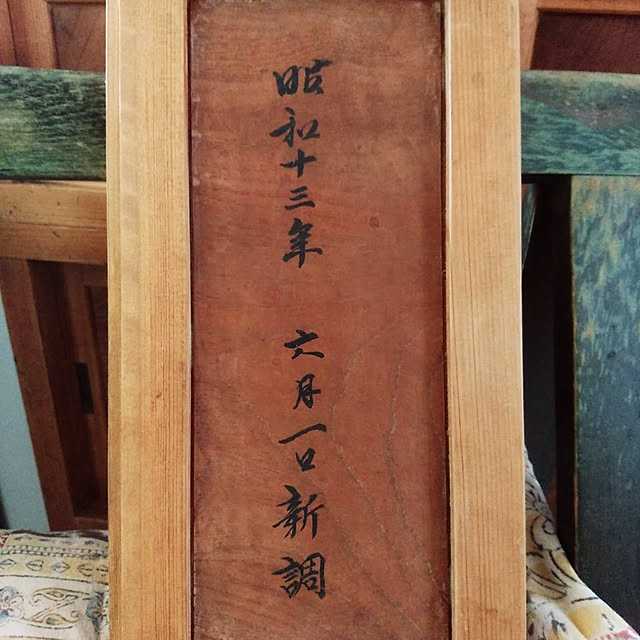 昭和十三年 六月一日新調